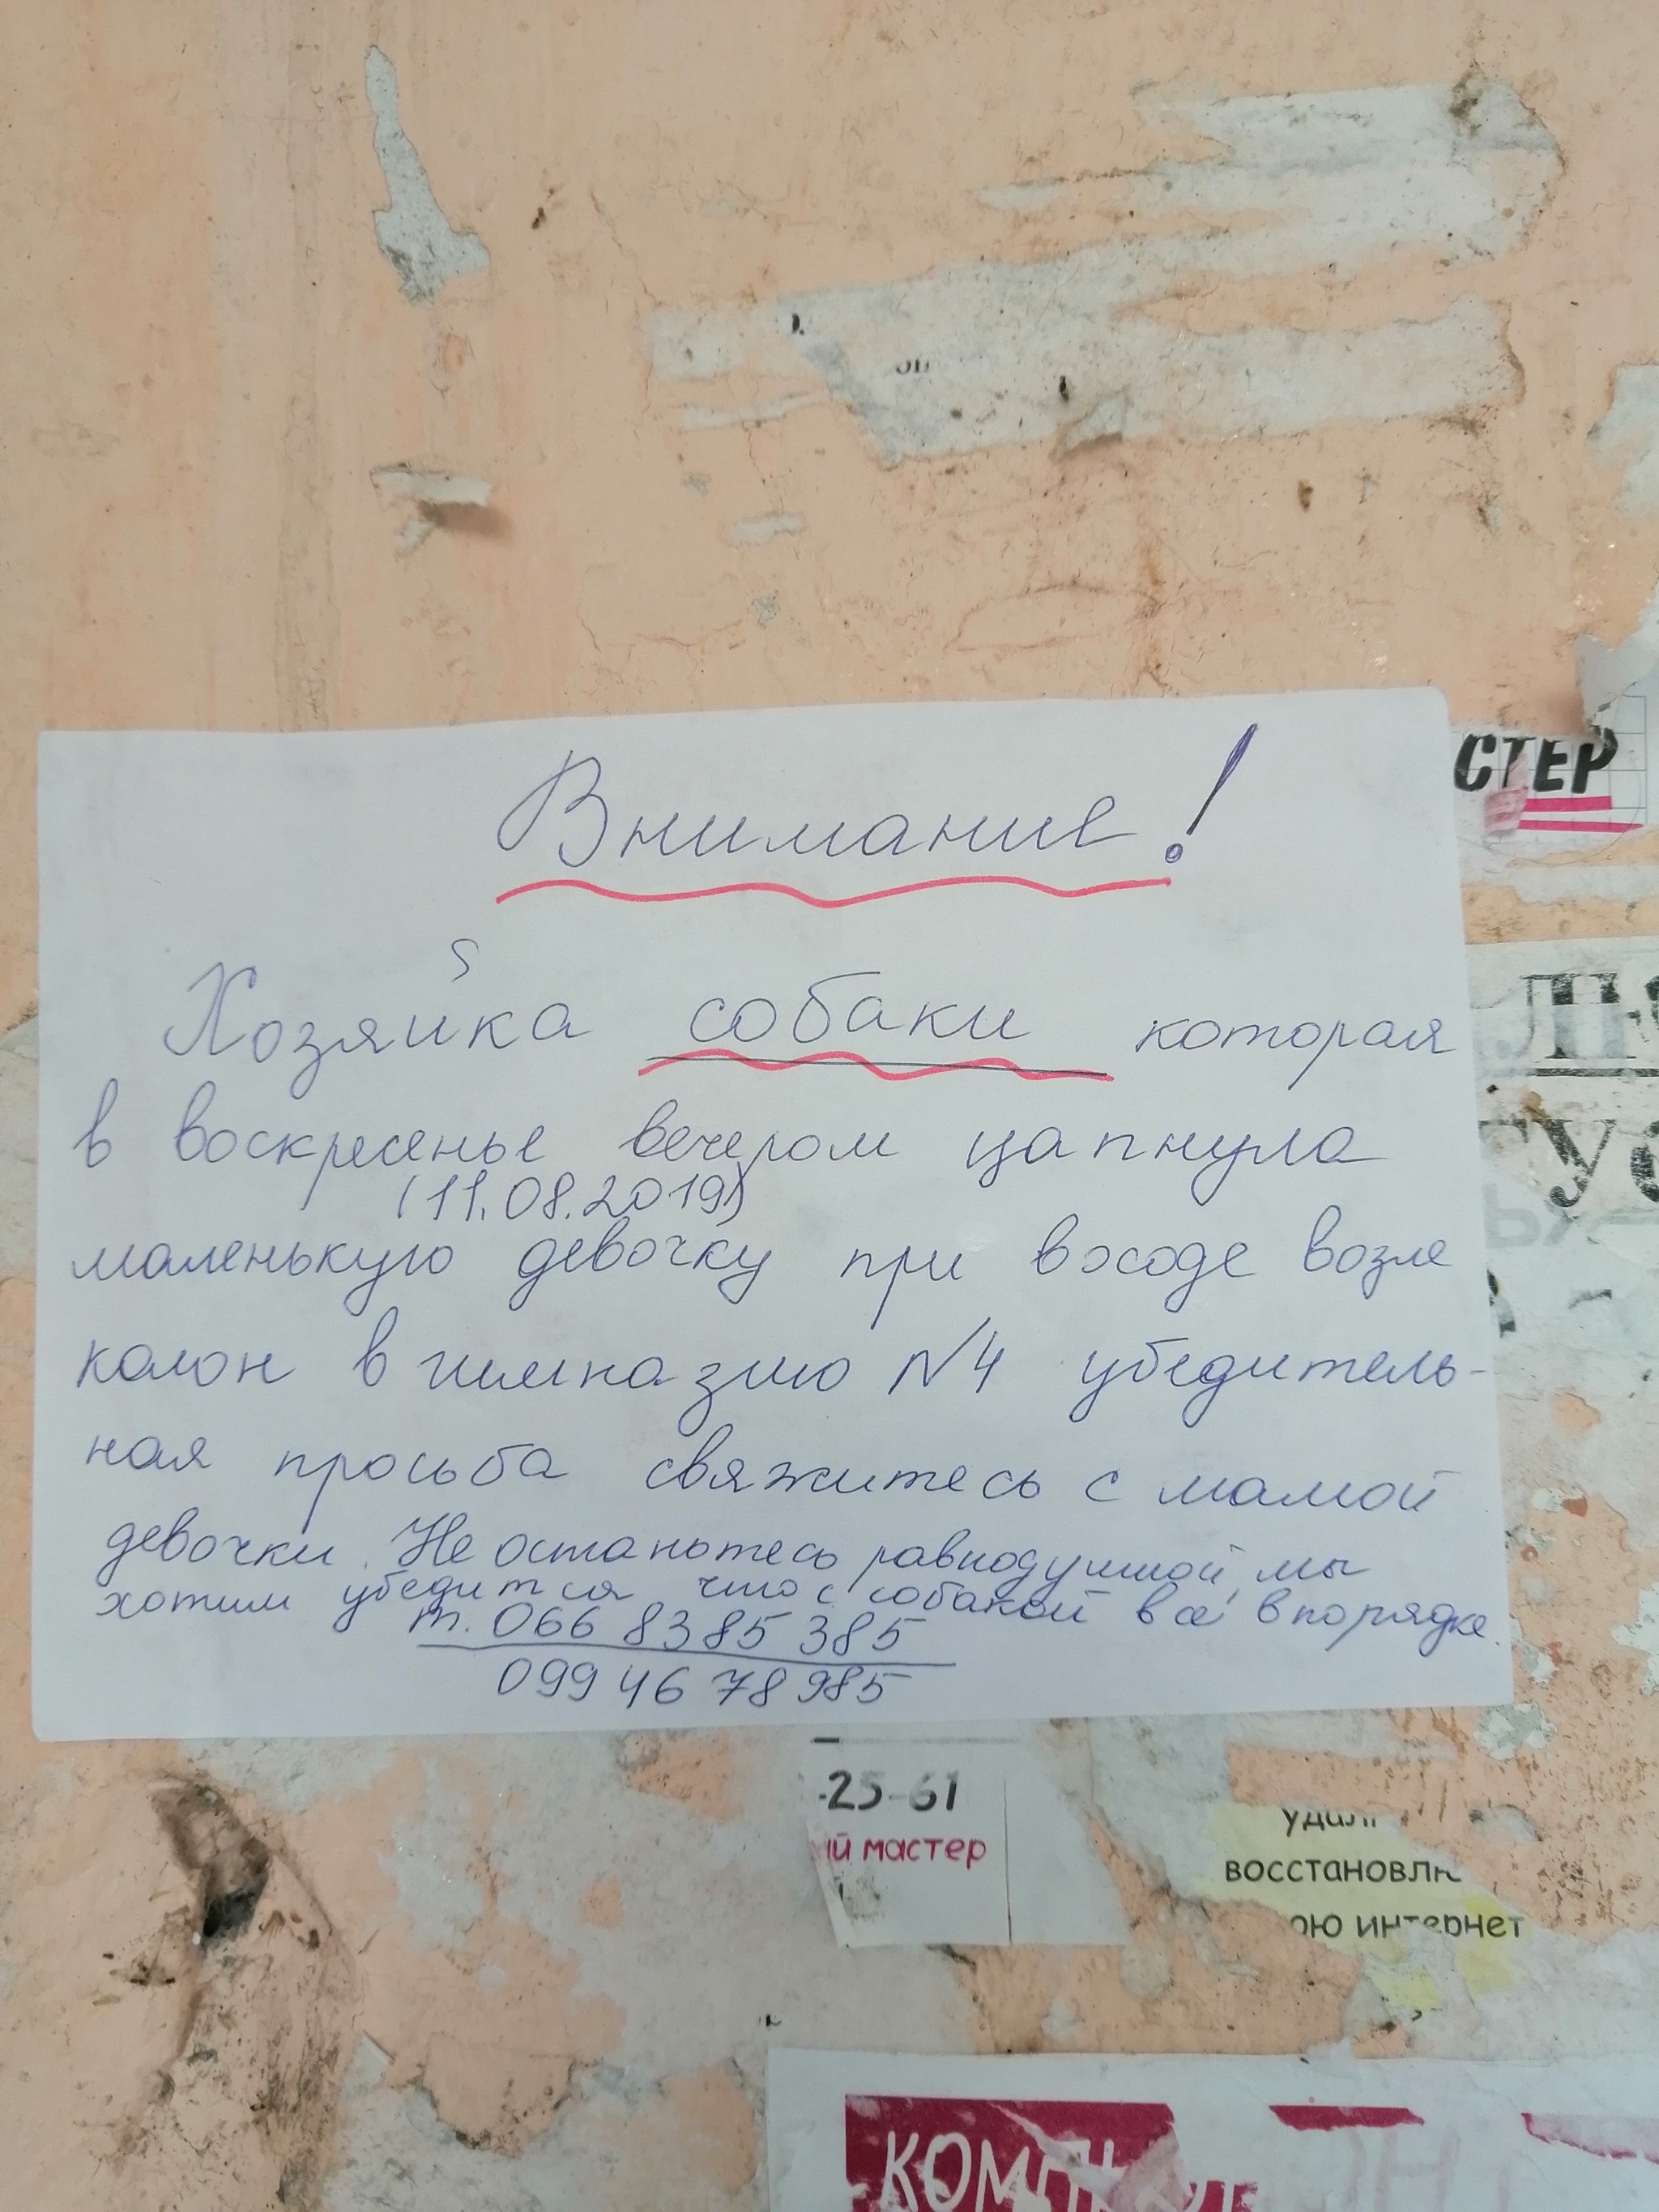 СТЕР
Внимание!
Хозяйка собаки которая
в воскресенье вечером цапнула
(11.08.2019)
маленькую девочку при входе возле
колон в гимназию N4 убедитель-
ная просьба свяжитесь с мамой
девочки. Не останьтесь равнодушной, мы
хотим убедится что с собакой все в порядке.
т. 066 8385 385
099 46 78 985
-25-61
ий мастер
восстановл
ою интернет